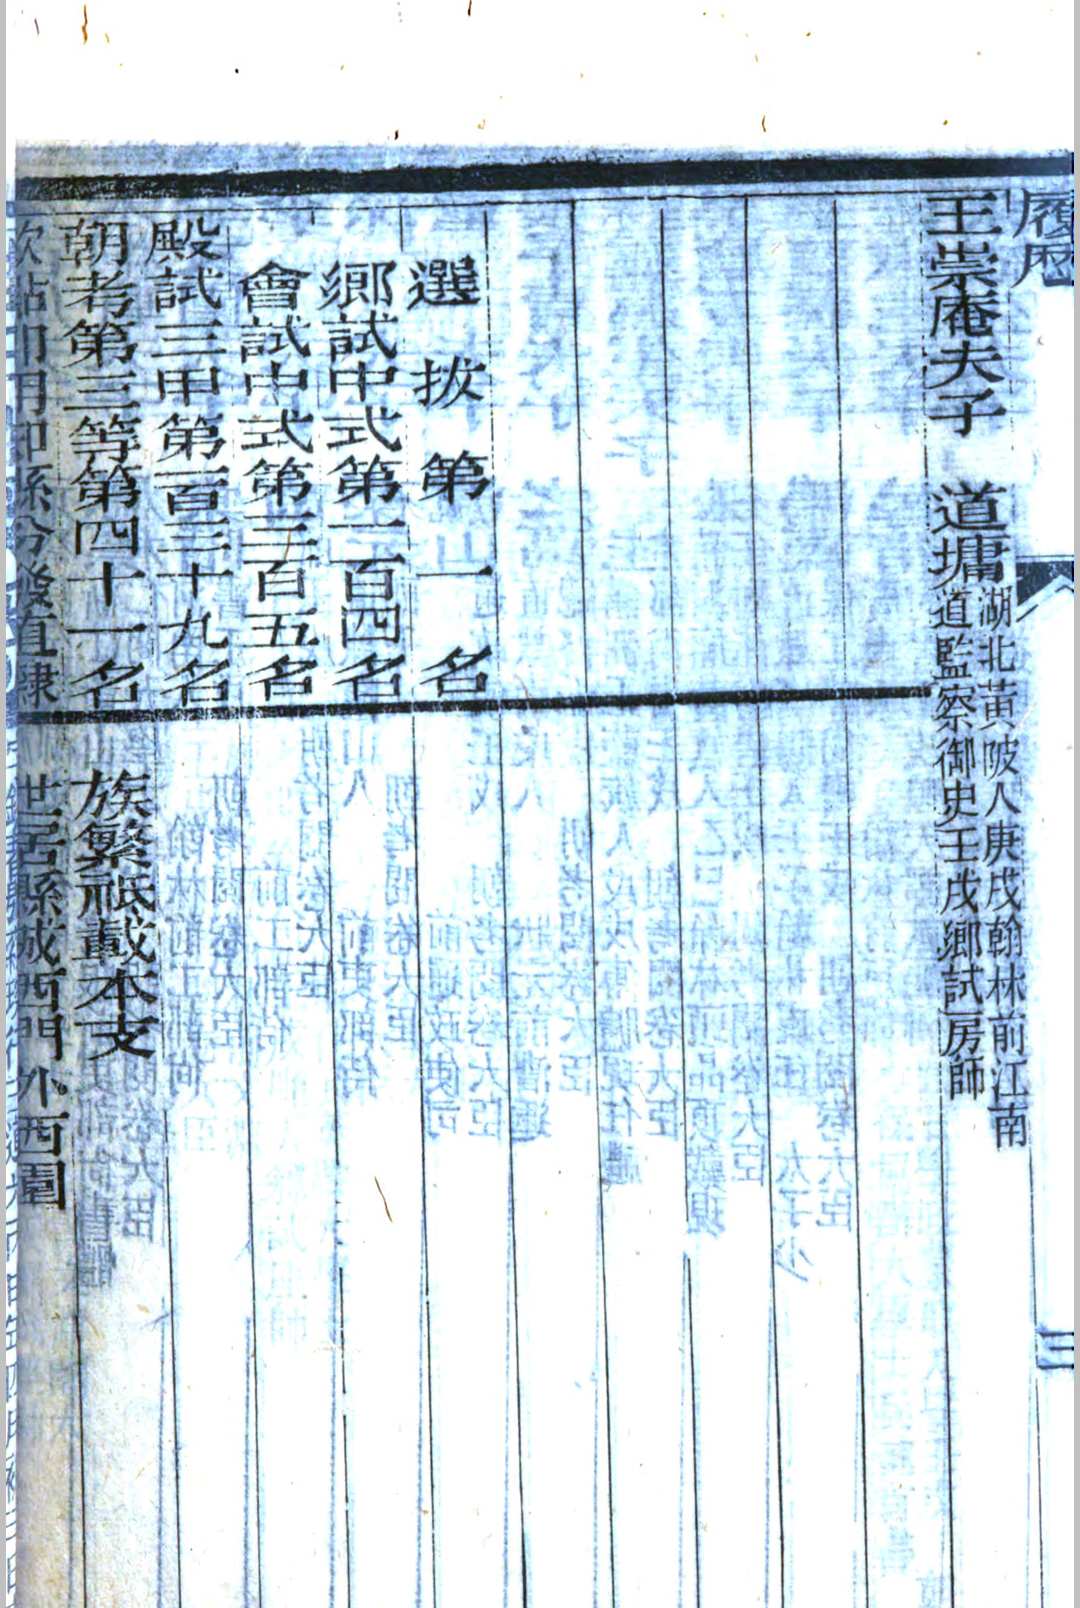 履歷
三
王崇庵夫子 道墉 湖北黃陂人庚戌翰林前江南
道監察御史壬戌鄉試房師
選拔第一名
鄉試中式第一百四名
會試中式第三百五名
殿試三甲第百三十九名
朝考第三等第四十一名
欽點即用知縣分發直隸
族繁祇載本支
世居縣城西門外西園